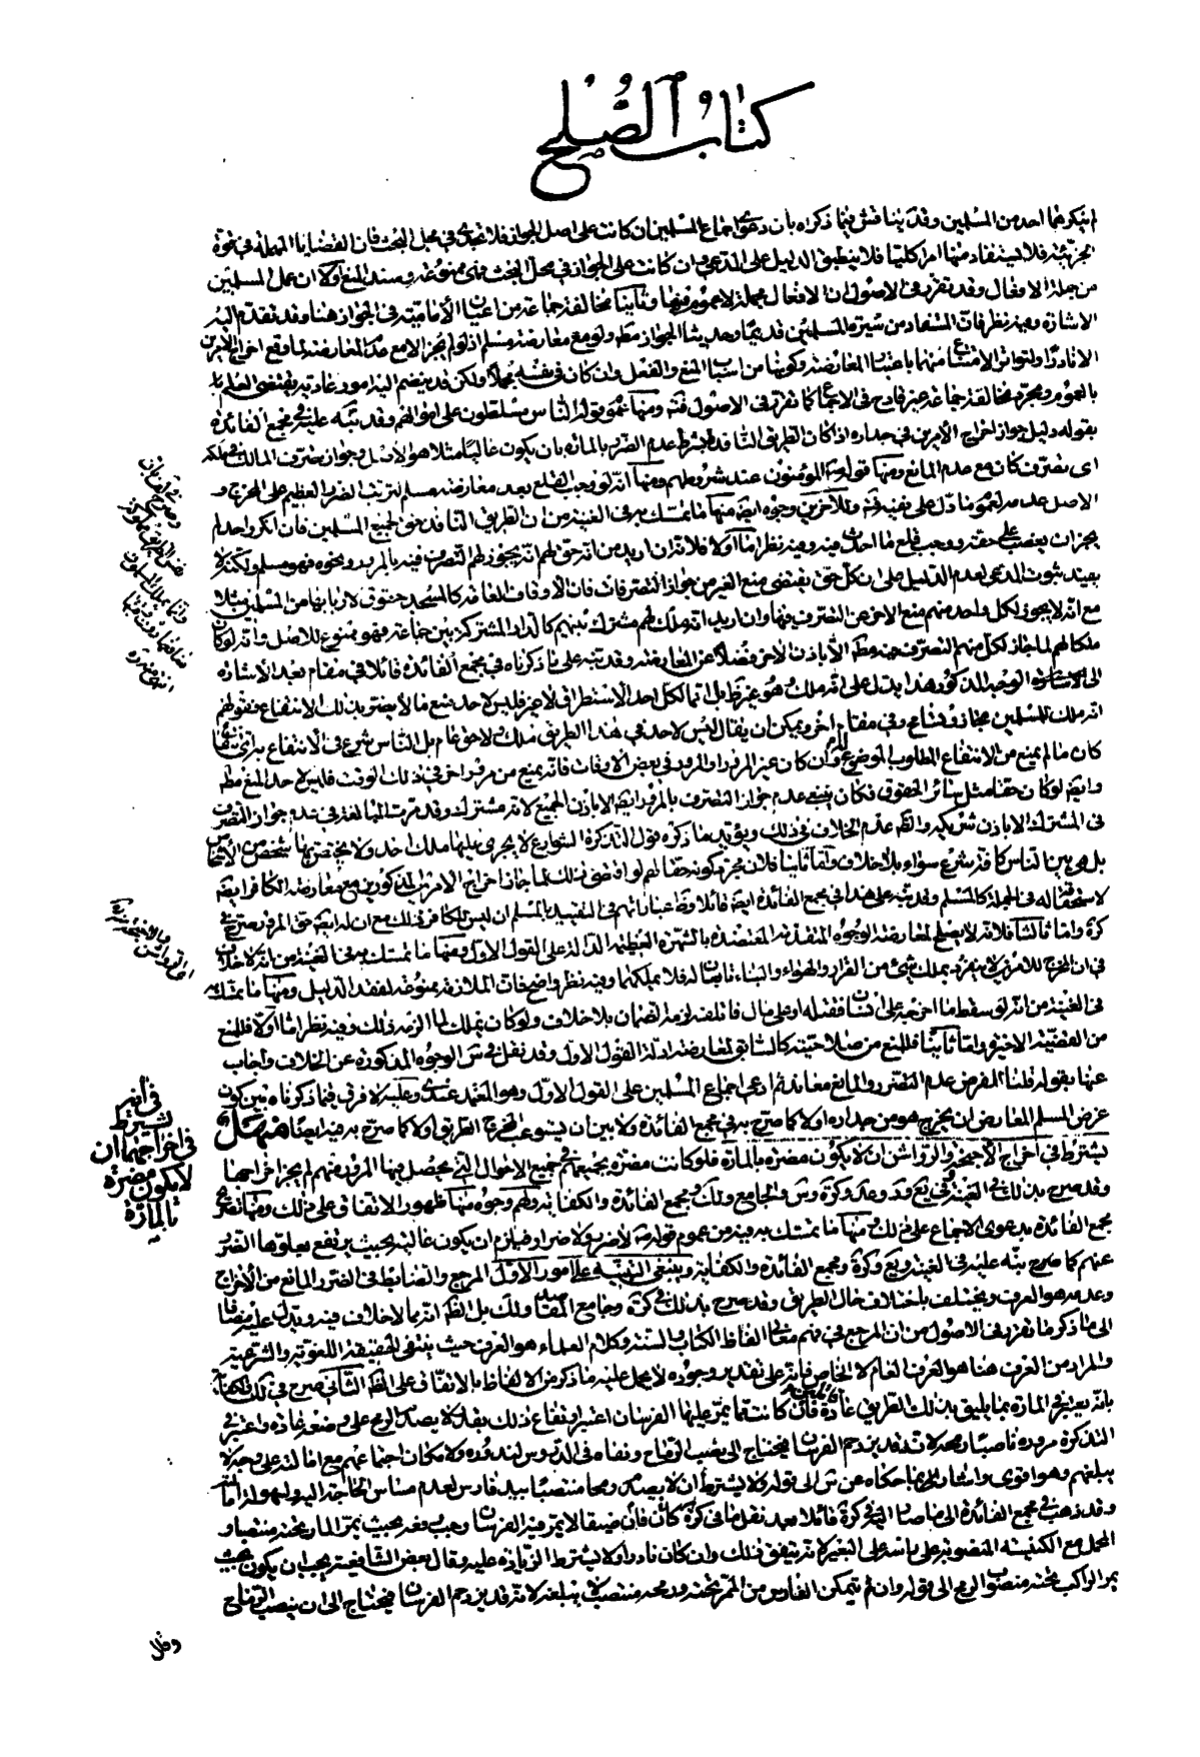 كتاب الصلح
لم ينكرها احد من المسلمين وقد يناقش فيما ذكراه بان دعوى اجماع المسلمين ان كانت على اصل الجواز فلا تجدى في محل البحث فان القضايا المهملة في قوة
الجزئية فلا يستفاد منها امرا كليا فلا ينطبق الدليل على المدعى وان كانت على الجواز في محل البحث فهى ممنوعة وسند المنع اولا ان عمل المسلمين
من جملة الافعال وقد تقرر في الاصول ان الافعال مجملة لا عموم فيها وثانيا مخالفة جماعة من اعيان الأمامية في الجواز هنا وقد تقدم اليه
الاشارة وفيه نظر فان المستفاد من سيرة المسلمين قديما وحديثا الجواز مطلقا ولو مع معارضة مسلم اذ لو لم يجز الا مع عدم المعارضة لما وقع اخراج الامرين
الا نادرا ولتواتر الامتناع منهما باعتبار المعارضة وكونها من اسباب المنع والفعل وان كان في نفسه مجملا ولكن قد ينضم اليه امور عادية يقتضى العلم
بالعموم ومجرد مخالفة جماعة غير قادح في الاجماع كما تقرر في الاصول فتم ومنها عموم قوله الناس مسلطون على اموالهم وقد نبه عليه في مجمع الفائدة
بقوله دليل جواز اخراج الأمرين في جداره اذا كان الطريق النافذ بشرط عدم الضرر بالمارة بان يكون عاليا مثلا هو الاصل وجواز تصرف المالك في ملكه
اى تصرف كان مع عدم المانع ومنها قوله المؤمنون عند شروطهم ومنها انه لو وجب القلع بعد معارضة مسلم لترتب الضرر العظيم على المخرج و
الاصل عدمه لعموم ما دل على نفيه فتم وللآخرين وجوه ايضا منها ما تمسك به في الغنية من ان الطريق النافذ حق لجميع المسلمين فان انكر واحد لم
يجز ان يغصب على حقه ووجب قلع ما احدث فيه وفيه نظر اما اولا فلانه ان اريد من انه حق لهم انه يجوز لهم التصرف فيه بالمرور ونحوه فهو مسلم ولكنه لا
يفيد ثبوت المدعى لعدم الدليل على ان كل حق يقتضى منع الغير من جواز التصرفات فان الاوقاف العامة كالمسجد حقوق لاربابها من المسلمين مثلا
مع انه لا يجوز لكل واحد منهم منع الاخر عن التصرف فيها وان اريد انه ملك لهم مشترك بينهم كالدار المشتركة بين جماعة فهو ممنوع للاصل وانه لو كان
ملكا لهم لما جاز لكل منهم التصرف فيه الا باذن الاخر فضلا عن المعارضة وقد نبه على ما ذكرناه في مجمع الفائدة قائلا في مقام بعد الاشارة
الى الوجه المذكور وهذا يدل على انه ملك وهو غير ظاهر بل انما لكل احد الاستطراق لا غير فليس لاحد منع ما لا يضر بذلك الانتفاع فقولهم
انه ملك للمسلمين مجاز وتسامح وفى مقام اخر ويمكن ان يقال ليس لاحد في هذا الطريق ملك ولا حق عام بل الناس شرع في الانتفاع به
كان ما لم يمنع من الانتفاع المطلوب الموضوع له وان كان غير المرور او المرور في بعض الاوقات فانه يمنع من مر فيه اخر في ذلك الوقت فليس لاحد المنع
وايضا لو كان حقا مثل سائر الحقوق فكان ينبغى عدم جواز التصرف بالمرور ايضا الا باذن الجميع لانه مشترك وقد مرت المبالغة في عدم جواز التصرف
فى المشترك الا باذن شريكه والظاهر عدم الخلاف في ذلك ويؤيد ما ذكره قول التذكرة الشوارع لا يجرى عليها ملك احد ولا يختص بها شخص من الأشخاص
بل هى بين الناس كافة شرع سواء بلا خلاف واما ثانيا فلان مجرد كونه حقا لهم لو اقتضى ذلك لما جاز اخراج الامرين المذكورين مع معارضة الكافر ايضا
لاستحقاقه في الجملة كالمسلم وقد نبه على هذا في مجمع الفائدة ايضا قائلا وظاهر عباراتهم في التقييد بالمسلم ان ليس للكافر ذلك مع ان له ايضا حق المرور صرح به في
كرة واما ثالثا فلانه لا يصلح لمعارضة الوجوه المتقدمة المعتضدة بالشهرة العظيمة الدالة على القول الاول ومنها ما تمسك به في الغنية من انه لا خلاف
في ان المخرج للامرين لا يفرد بملك شئ من القرار والهواء والبناء تابعان له فلا يملكهما وفيه نظر واضح فان الملازمة ممنوعة لفقد الدليل ومنها ما تمسك به
فى الغنية من انه لو سقط ما اخرجه على انسان فقتله او على مال فاتلفه لزمه الضمان بلا خلاف ولو كان يملك لما الزمه ذلك وفيه نظر اما اولا فللمنع
من القضية الاخيرة واما ثانيا فللمنع من صلاحيته كالسابق لمعارضة ادلة القول الاول وقد نقل في س الوجوه المذكورة عن الخلاف واجاب
عنها بقوله قلنا المفرض عدم التضرر والمانع معاند ثم ادعى اجماع المسلمين على القول الاول وهو المعتمد عندى وعليه لا فرق فيما ذكرناه بين كون
غرض المسلم المعارض ان يخرج هو من جداره اولا كما صرح به في مجمع الفائدة ولا بين ان يستوعب المخرج الطريق اولا كما صرح به فيه ايضا منهل
يشترط في اخراج الأجنحة والرواشن ان لا يكون مضرة بالمارة فلو كانت مضرة بجميعهم في جميع الاحوال التى يحصل فيها المرور منهم لم يجز اخراجها
وقد صرح بذلك في الغنية وفع وعد وكرة وس والجامع ولك ومجمع الفائدة والكفاية ولهم وجوه منها ظهور الاتفاق على ذلك ومنها تصريح
مجمع الفائدة بدعوى الاجماع على ذلك ومنها ما تمسك به فيه من عموم قوله لا ضرر ولا ضرار فيلزم ان يكون عالية بحيث يرتفع بعلوها الضرر
عنهم كما صرح به في الغنية ويع وكرة ومجمع الفائدة والكفاية وينبغى التنبيه على امور الاول المرجع والضابط فى الضرر المانع من الأخراج
وعدمه هو العرف ويختلف باختلاف حال الطريق وقد صرح بذلك في كرة وجامع المقاصد ولك بل الظاهر انه مما لا خلاف فيه ويدل عليه مضافا
الى ما ذكر ما تقرر في الاصول من ان المرجع في فهم معانى الفاظ الكتاب والسنة وكلام العلماء هو العرف حيث ينتفى الحقيقة اللغوية والشرعية
والمراد من العرف هنا هو العرف العام لا الخاص فانه على تقدير وجوده لا يحمل عليه ما ذكر من الالفاظ بالاتفاق على الظاهر الثانى صرح في لك
بانه يعتبر في المارة بما يليق بذلك الطريق عادة فان كانت مما يمر عليها الفرسان اعتبر ارتفاع ذلك بقدر لا يصدم الرمح على وضعه عادة واعتبر في
التذكرة مروره ناصبا رمحه لانه قد يزدحم الفرسان فيحتاج الى نصب الرماح ونفاه في الدروس لندوره ولامكان اجتماعهم مع امالته على وجه لا
يبلغهم وهو اقوى واشار بما حكاه عن س الى قوله ولا يشترط ان لا يصدم رمحا منتصبا بيد فارس لعدم مساس الحاجة اليه ولسهولة امالته
وقد ذهب في مجمع الفائدة الى ما صار اليه في كرة قائلا بعد نقل ما فى كرة كان فان ضيقا لا يمر فيه الفرسان وجب رفعه بحيث يمر المار تحته منتصبا و
المحمل مع الكنيسة المنصوبة على راسه على البعير لانه يتفق ذلك وان كان نادرا ولا يشترط الزيادة عليه وقال بعض الشافعية يجب ان يكون بحيث
يمر الراكب تحته منصوب الرمح الى قوله وان لم يتمكن الفارس من الممر تحته ورمحه منتصب لا يبلغه لانه قد يزدحم الفرسان فيحتاج الى ان ينصب الرماح
فى انه
يشترط
فى اخراجهما ان
لا يكون مضرة
بالمارة
وقال